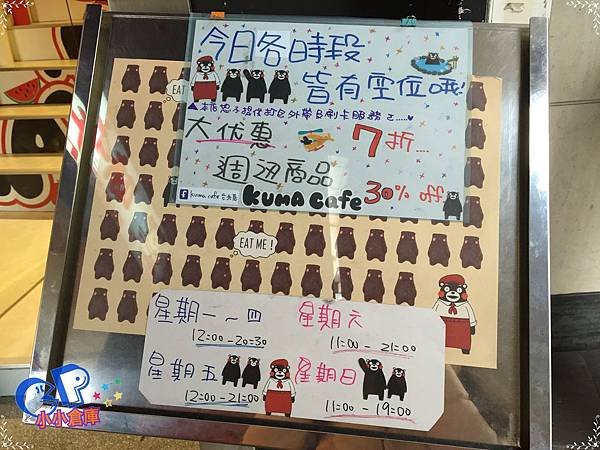 今日各時段
皆有空位哦!
▲本店恕不提供打包外帶&刷卡服務
大优惠 7折....
週边商品 30% off
f kuma cafe 台北店
KUMA Cafe
EAT
EAT ME!
星期一～四
12:00-20:30
星期六
11:00-21:00
星期五
12:00-21:00
星期日
11:00-19:00
CP
小小倉庫